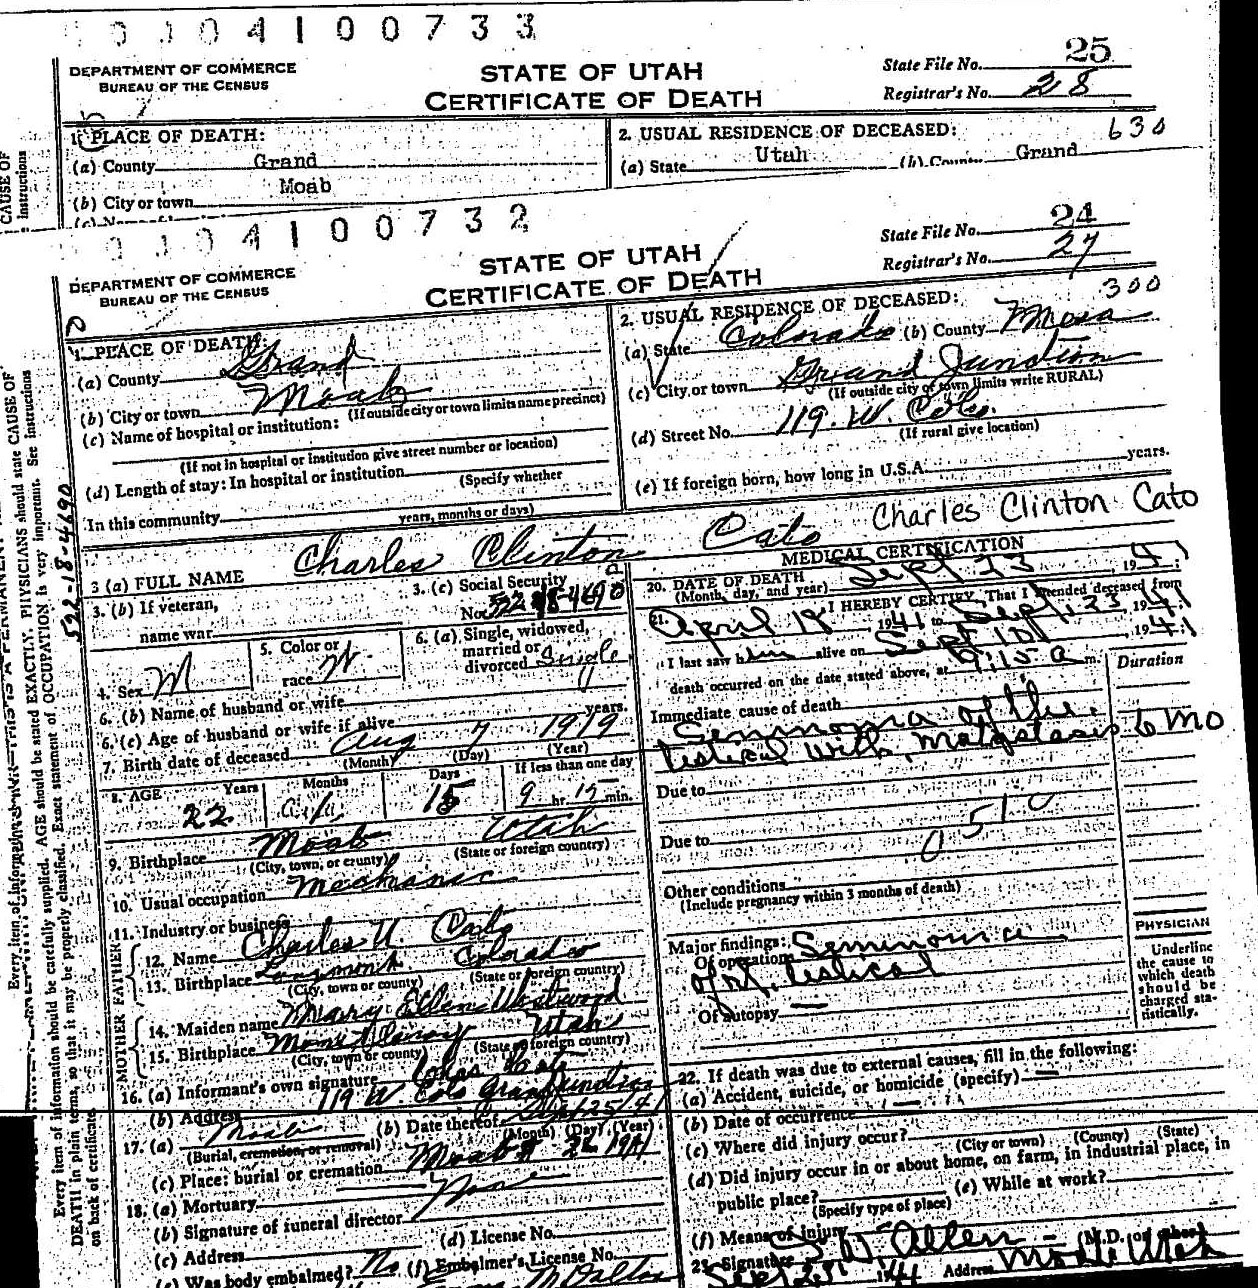 0 0 0 4 1 0 0 7 3 3
DEPARTMENT OF COMMERCE
BUREAU OF THE CENSUS
STATE OF UTAH
CERTIFICATE OF DEATH
State File No. 25
Registrar's No. 28
1. PLACE OF DEATH:
(a) County Grand
(b) City or town Moab
2. USUAL RESIDENCE OF DECEASED: 630
(a) State Utah (b) County Grand
0 0 0 4 1 0 0 7 3 2
DEPARTMENT OF COMMERCE
BUREAU OF THE CENSUS
STATE OF UTAH
CERTIFICATE OF DEATH
State File No. 24
Registrar's No. 27
300
1. PLACE OF DEATH:
(a) County Grand
(b) City or town Moab
(If outside city or town limits name precinct)
(c) Name of hospital or institution:
(If not in hospital or institution give street number or location)
(d) Length of stay: In hospital or institution
(Specify whether
In this community
years, months or days)
2. USUAL RESIDENCE OF DECEASED:
(a) State Colorado (b) County Mesa
(c) City or town Grand Junction
(If outside city or town limits write RURAL)
(d) Street No. 119. W. Colo.
(If rural give location)
(e) If foreign born, how long in U.S.A. years.
Charles Clinton Cato
3 (a) FULL NAME Charles Clinton Cato
3. (b) If veteran,
name war
3. (c) Social Security
No. 522-18-4690
4. Sex M
5. Color or
race W.
6. (a) Single, widowed,
married or
divorced Single
6. (b) Name of husband or wife
6. (c) Age of husband or wife if alive years.
7. Birth date of deceased Aug 7 1919
(Month) (Day) (Year)
8. AGE Years Months Days If less than one day
22 15 9 hr. 15 min.
9. Birthplace Moab Utah
(City, town, or county) (State or foreign country)
10. Usual occupation Mechanic
11. Industry or business
FATHER
12. Name Charles U. Cato
13. Birthplace Longmont. Colorado
(City, town or county) (State or foreign country)
MOTHER
14. Maiden name Mary Ellen Westwood
15. Birthplace Utah
(City, town or county) (State or foreign country)
16. (a) Informant's own signature Chas Cato
(b) Address 119 W Colo Grand Junction
17. (a) Moab (b) Date thereof Sept 25/41
(Burial, cremation, or removal) (Month) (Day) (Year)
(c) Place: burial or cremation Moab
18. (a) Mortuary None
(b) Signature of funeral director
(c) Address (d) License No.
(e) Was body embalmed? No (f) Embalmer's License No.
MEDICAL CERTIFICATION
20. DATE OF DEATH
(Month, day, and year) Sept 23 1941
21. I HEREBY CERTIFY, That I attended deceased from
April 18 1941 to Sept. 23 1941
I last saw him alive on Sept 10 1941
death occurred on the date stated above, at 9:15 a m.
Duration
Immediate cause of death
Seminoma of the
testical with Metastasis 6 MO
Due to
Due to
0 5 1 0
Other conditions
(Include pregnancy within 3 months of death)
Major findings:
Of operation Seminoma
of rt. testical
Of autopsy —
PHYSICIAN
Underline
the cause to
which death
should be
charged sta-
tistically.
22. If death was due to external causes, fill in the following:
(a) Accident, suicide, or homicide (specify) —
(b) Date of occurrence —
(c) Where did injury occur?
(City or town) (County) (State)
(d) Did injury occur in or about home, on farm, in industrial place, in
public place? (e) While at work?
(Specify type of place)
(f) Means of injury
23. Signature Allen (M.D. or other)
Sept 25 1941 Address Moab Utah
522-18-4690
Every item of information should be carefully supplied. AGE should be stated EXACTLY. PHYSICIANS should state CAUSE OF
DEATH in plain terms, so that it may be properly classified. Exact statement of OCCUPATION is very important. See instructions
on back of certificate.
CAUSE OF
instructions